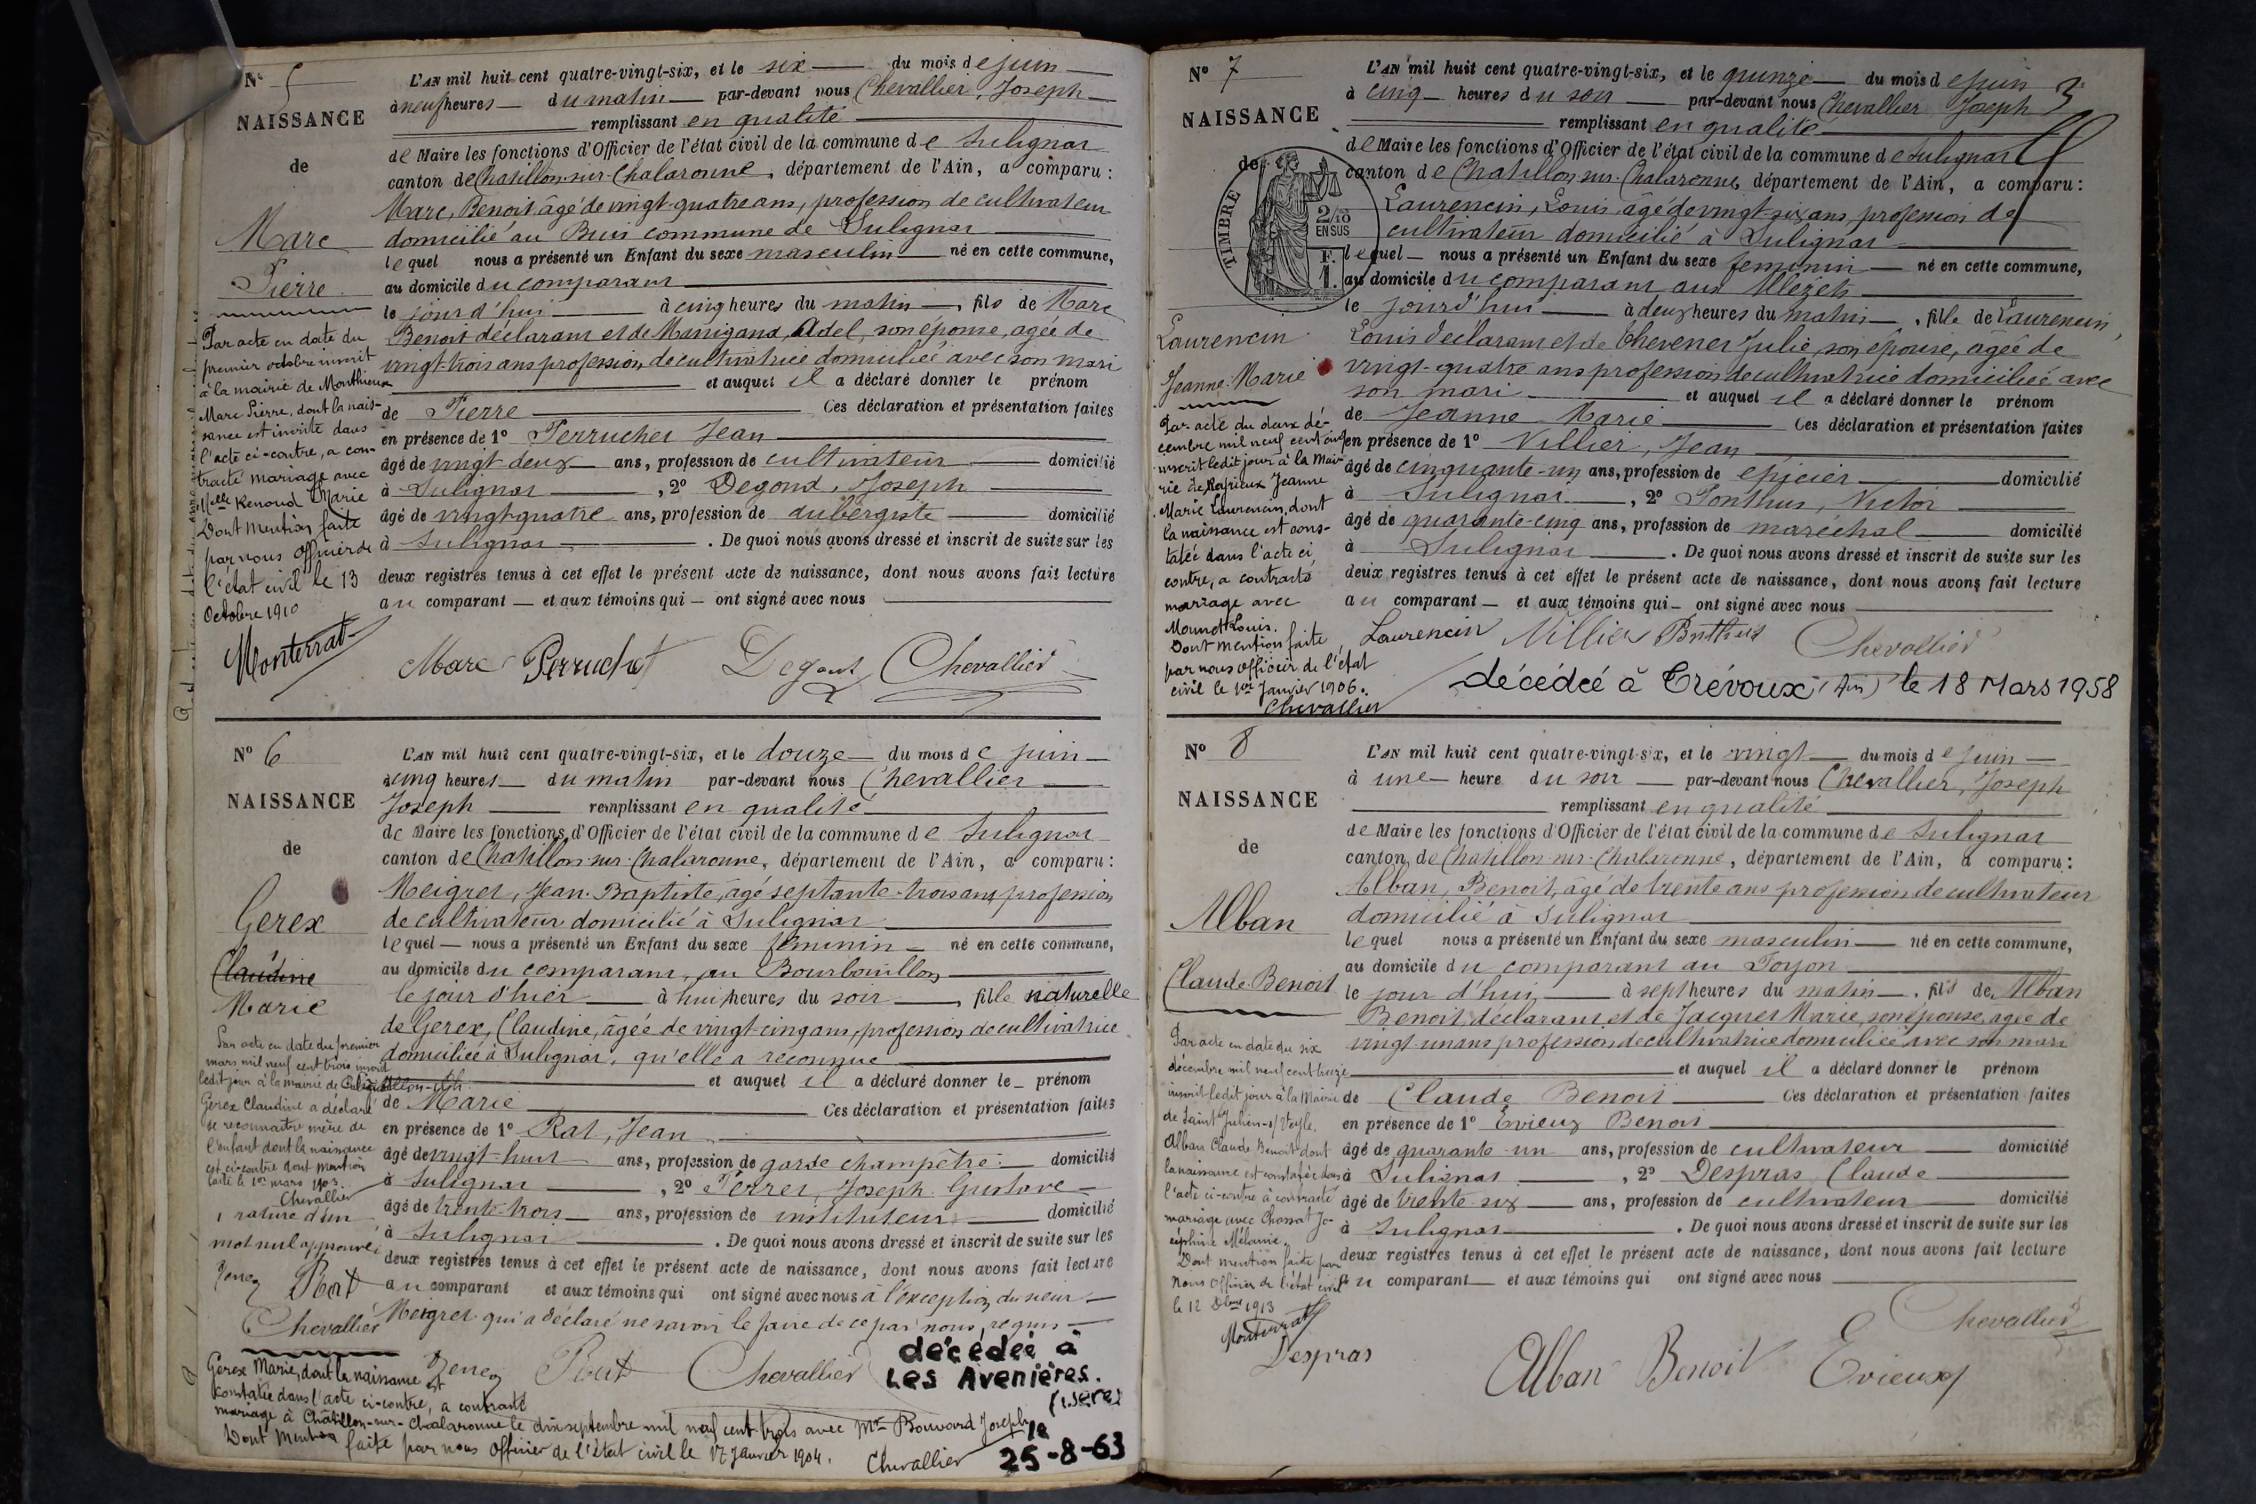 N° 5
NAISSANCE
de
Marc
Pierre
L'AN mil huit cent quatre-vingt-six, et le six du mois de juin
à neuf heures du matin par-devant nous Chevallier, Joseph
remplissant en qualité
de Maire les fonctions d'Officier de l'état civil de la commune de Sulignat
canton de Chatillon-sur-Chalaronne, département de l'Ain, a comparu :
Marc, Benoit âgé de vingt-quatre ans, profession de cultivateur
domicilié au Buis commune de Sulignat
lequel nous a présenté un Enfant du sexe masculin né en cette commune,
au domicile du comparant
le jour d'hui à cinq heures du matin, fils de Marc
Benoit déclarant et de Manigand, Adel, son épouse, agée de
vingt-trois ans profession de cultivatrice domiciliée avec son mari
et auquel il a déclaré donner le prénom
de Pierre Ces déclaration et présentation faites
en présence de 1° Perruchet Jean
âgé de vingt-deux ans, profession de cultivateur domicilié
à Sulignat, 2° Degond, Joseph
âgé de vingt-quatre ans, profession de aubergiste domicilié
à Sulignat. De quoi nous avons dressé et inscrit de suite sur les
deux registres tenus à cet effet le présent acte de naissance, dont nous avons fait lecture
au comparant et aux témoins qui ont signé avec nous
Marc Perruchet Degond Chevallier
Par acte en date du
premier octobre inscrit
à la mairie de Monthieux
Marc Pierre, dont la nais-
sance est inscrite dans
l'acte ci-contre, a con-
tracté mariage avec
Melle Renoud Marie
Dont mention faite
par nous officier de
l'état civil le 13
Octobre 1910
Monterrat
N° 6
NAISSANCE
de
Gerex
Claudine
Marie
L'AN mil huit cent quatre-vingt-six, et le douze du mois de juin
à cinq heures du matin par-devant nous Chevallier
Joseph remplissant en qualité
de Maire les fonctions d'Officier de l'état civil de la commune de Sulignat
canton de Chatillon-sur-Chalaronne, département de l'Ain, a comparu :
Meigret, Jean-Baptiste, âgé septante-trois ans profession
de cultivateur domicilié à Sulignat
lequel nous a présenté un Enfant du sexe féminin né en cette commune,
au domicile du comparant, au Bourbouillon
le jour d'hier à huit heures du soir, fille naturelle
de Gerex, Claudine, âgée de vingt-cinq ans, profession de cultivatrice
domiciliée à Sulignat, qu'elle a reconnue
et auquel il a déclaré donner le prénom
de Marie Ces déclaration et présentation faites
en présence de 1° Rat, Jean
âgé de vingt-huit ans, profession de garde champêtre domicilié
à Sulignat, 2° Ferrer, Joseph Gustave
âgé de trente-trois ans, profession de instituteur domicilié
à Sulignat. De quoi nous avons dressé et inscrit de suite sur les
deux registres tenus à cet effet le présent acte de naissance, dont nous avons fait lecture
au comparant et aux témoins qui ont signé avec nous à l'exception du sieur
Meigret qui a déclaré ne savoir le faire de ce par nous requis
Chevallier
Par acte en date du premier
mars mil neuf cent trois inscrit
ledit jour à la mairie de
Gerex Claudine a déclaré
se reconnaître mère de
l'enfant dont la naissance
est ci-contre dont mention
faite le 1er mars 1903.
Chevallier
1 rature d'un
mot nul approuvé
Rat
Chevallier
Gerex Marie, dont la naissance est
constatée dans l'acte ci-contre, a contracté
mariage à Châtillon-sur-Chalaronne le dix septembre mil neuf cent trois avec Mr Bouvard Joseph
Dont mention faite par nous Officier de l'état civil le 17 Janvier 1904.
Chevallier
décédée à
Les Avenières.
(Isère)
le
25-8-63
N° 7
NAISSANCE
de
TIMBRE
2/10
EN SUS
F.
1.
Laurencin
Jeanne-Marie
3
L'AN mil huit cent quatre-vingt-six, et le quinze du mois de juin
à cinq heures du soir par-devant nous Chevallier Joseph
remplissant en qualité
de Maire les fonctions d'Officier de l'état civil de la commune de Sulignat
canton de Chatillon-sur-Chalaronne, département de l'Ain, a comparu :
Laurencin, Louis, âgé de vingt-six ans, profession de
cultivateur domicilié à Sulignat
lequel nous a présenté un Enfant du sexe féminin né en cette commune,
au domicile du comparant aux
le jourd'hui à deux heures du matin, fille de Laurencin,
Louis déclarant et de Thevenet Julie, son épouse, agée de
vingt-quatre ans profession de cultivatrice domiciliée avec
son mari et auquel il a déclaré donner le prénom
de Jeanne Marie Ces déclaration et présentation faites
en présence de 1° Villier, Jean
âgé de cinquante-un ans, profession de épicier domicilié
à Sulignat, 2° Ponthus, Victor
âgé de quarante-cinq ans, profession de maréchal domicilié
à Sulignat. De quoi nous avons dressé et inscrit de suite sur les
deux registres tenus à cet effet le présent acte de naissance, dont nous avons fait lecture
au comparant et aux témoins qui ont signé avec nous
Laurencin Villier Ponthus Chevallier
décédée à Trévoux (Ain) le 18 Mars 1958
Par acte du deux dé-
cembre mil neuf cent cinq
inscrit ledit jour à la Mai-
rie de Jeanne
Marie Laurencin, dont
la naissance est cons-
tatée dans l'acte ci
contre, a contracté
mariage avec
Louis.
Dont mention faite
par nous officier de l'état
civil le 1er Janvier 1906.
Chevallier
N° 8
NAISSANCE
de
Alban
Claude-Benoit
L'AN mil huit cent quatre-vingt-six, et le vingt du mois de juin
à une heure du soir par-devant nous Chevallier, Joseph
remplissant en qualité
de Maire les fonctions d'Officier de l'état civil de la commune de Sulignat
canton de Chatillon-sur-Chalaronne, département de l'Ain, a comparu :
Alban, Benoit, âgé de trente ans profession de cultivateur
domicilié à Sulignat
lequel nous a présenté un Enfant du sexe masculin né en cette commune,
au domicile du comparant au
le jour d'hui à sept heures du matin, fils de Alban
Benoit, déclarant et de Jacquet Marie, son épouse, agée de
vingt-un ans profession de cultivatrice domiciliée avec son mari
et auquel il a déclaré donner le prénom
de Claude Benoit Ces déclaration et présentation faites
en présence de 1° Evieux Benoit
âgé de quarante-un ans, profession de cultivateur domicilié
à Sulignat, 2° Despras Claude
âgé de trente-six ans, profession de cultivateur domicilié
à Sulignat. De quoi nous avons dressé et inscrit de suite sur les
deux registres tenus à cet effet le présent acte de naissance, dont nous avons fait lecture
au comparant et aux témoins qui ont signé avec nous
Chevallier
Despras Alban Benoit Evieux
Par acte en date du six
décembre mil neuf cent treize
inscrit ledit jour à la Mairie
de Saint Julien-s/Veyle,
Alban Claude Benoit dont
la naissance est constatée dans
l'acte ci-contre à contracté
mariage avec Chossat Jo-
séphine Mélanie.
Dont mention faite par
nous Officier de l'état civil
le 12 Dbre 1913
Monterrat